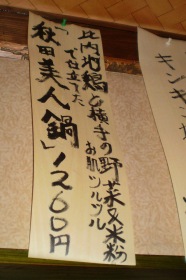 比内地鶏と横手の野菜&米粉
お肌ツルツル
で仕立てた
「秋田美人鍋」1260円
キンキ